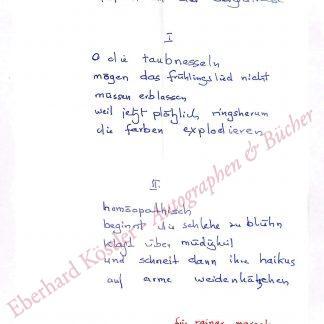 I
O die taubnesseln
mögen das frühlingslied nicht
müssen erblassen
weil jetzt plötzlich ringsherum
die farben explodieren
II.
homöopathisch
beginnt die schlehe zu blühn
klagt über müdigkeit
und schneit dann ihre haikus
auf arme weidenkätzchen
für rainer
Eberhard Köstler - Autographen & Bücher